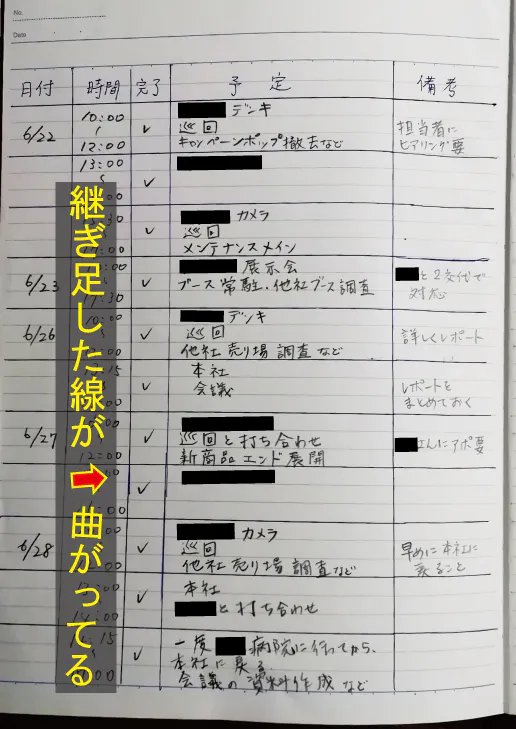 No.
Date
日付 時間 完了 予定 備考
6/22 10:00 〜 12:00 ✓ デンキ
巡回
キャンペーンポップ撤去など
担当者に
ヒアリング要
13:00 〜 :00 ✓
:30 〜 :00 ✓ カメラ
巡回
メンテナンスメイン
6/23 :00 〜 :30 ✓ 展示会
ブース常駐・他社ブース調査
と2交代で
対応
6/26 10:00 〜 :00 ✓ デンキ
巡回
他社売り場調査など
詳しくレポート
:15 〜 :00 ✓ 本社
会議
レポートを
まとめておく
6/27 〜 12:00 ✓
巡回と打ち合わせ
新商品エンド展開
さんにアポ要
:00 〜 :00 ✓
6/28 :00 〜 :00 ✓ カメラ
巡回
他社売り場調査など
早めに本社に
戻ること
:00 〜 :00 ✓ 本社
と打ち合わせ
:15 〜 :00 ✓ 一度 病院に行ってから、
本社に戻る
会議の資料作成など
継ぎ足した線が
曲がってる